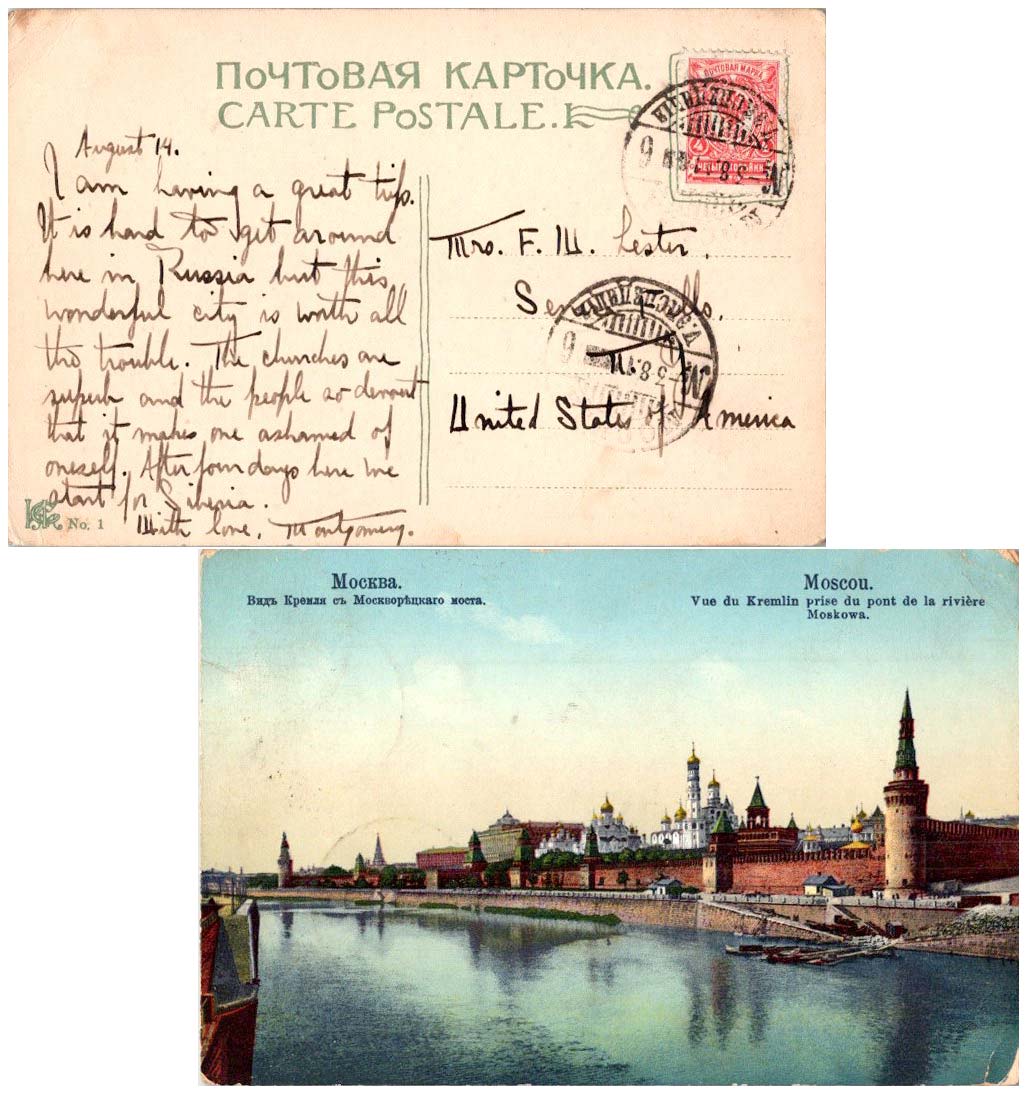 ПОЧТОВАЯ КАРТОЧКА.
CARTE POSTALE.
ПОЧТОВАЯ МАРКА
4
August 14.
I am having a great trip.
It is hard to get around
here in Russia but this
wonderful city is worth all
the trouble. The churches are
superb and the people so devout
that it makes one ashamed of
oneself. After four days here we
start for Siberia.
With love, Montgomery.
No. 1
Mrs. F. W. Lester,
Falls.
N.Y.
United States of America
Москва.
Видъ Кремля съ Москворѣцкаго моста.
Moscou.
Vue du Kremlin prise du pont de la rivière
Moskowa.